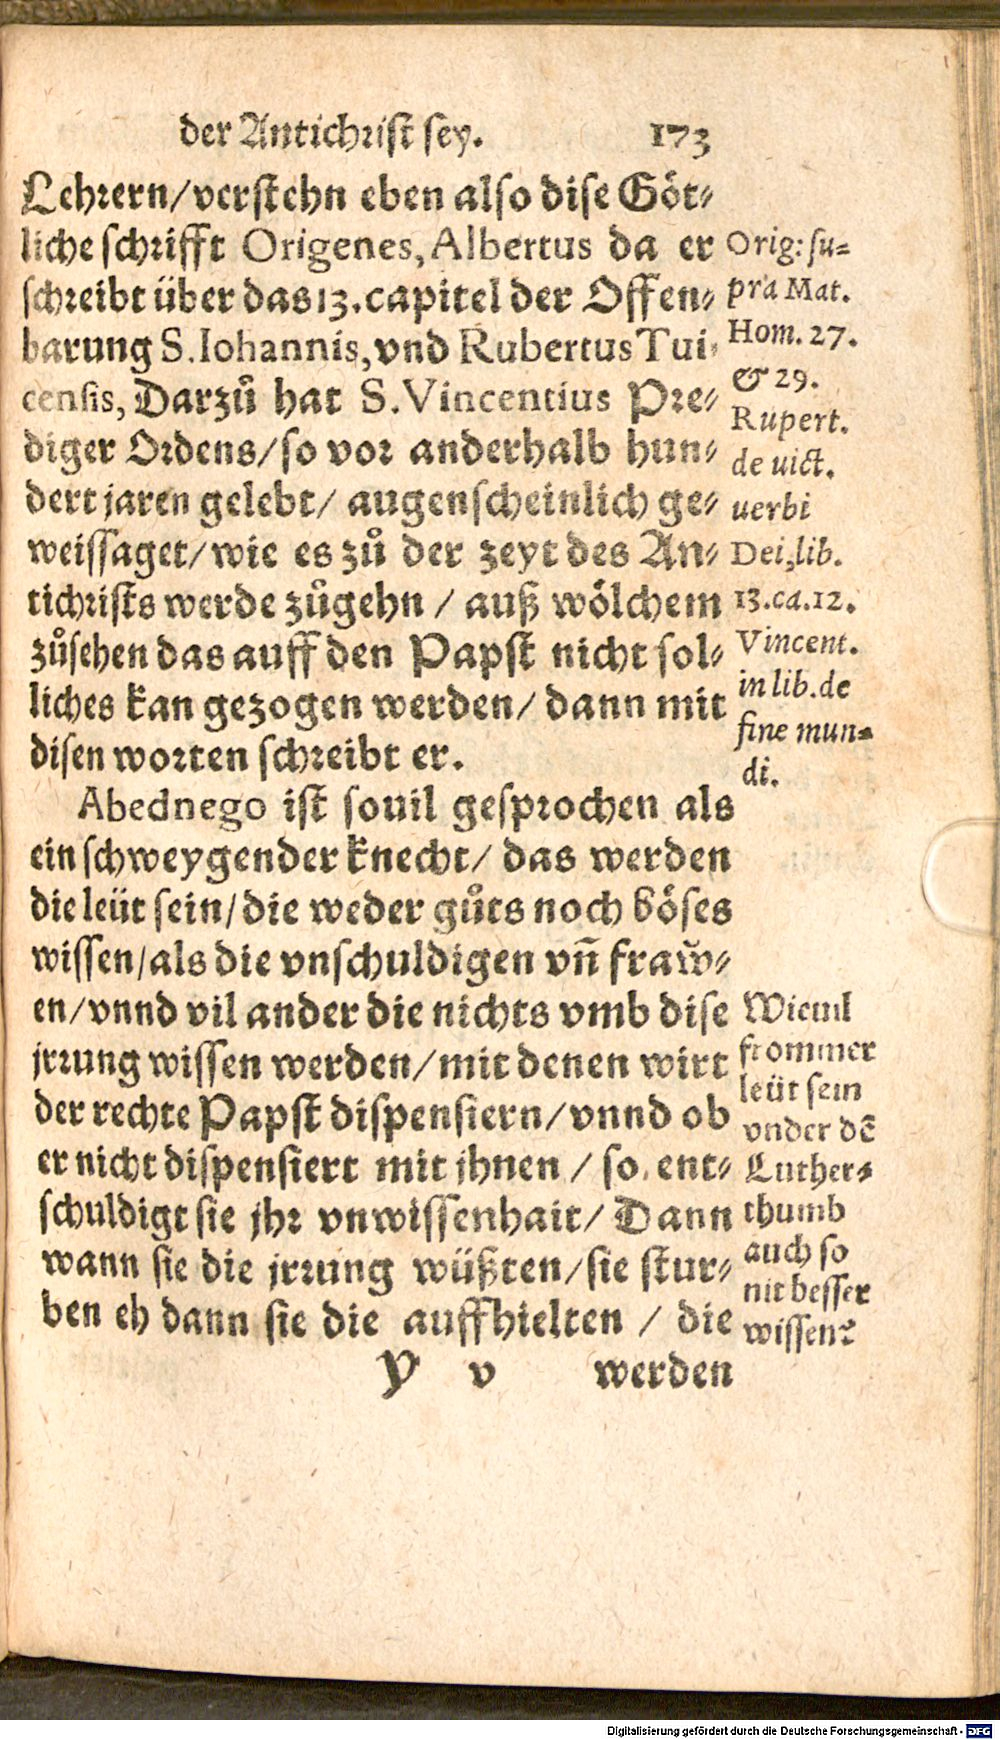 der Antichrist sey. 173
Lehrern/verstehn eben also dise Göt⸗
liche schrifft Origenes, Albertus da er
schreibt über das 13. capitel der Offen⸗
barung S. Iohannis, vnd Rubertus Tui⸗
censis, Darzů hat S. Vincentius Pre⸗
diger Ordens/so vor anderhalb hun⸗
dert jaren gelebt/ augenscheinlich ge⸗
weissaget/wie es zů der zeyt des An⸗
tichrists werde zůgehn / auß wölchem
zůsehen das auff den Papst nicht sol⸗
liches kan gezogen werden/ dann mit
disen worten schreibt er.
Orig: su⸗
pra Mat.
Hom. 27.
& 29.
Rupert.
de uict.
uerbi
Dei, lib.
13. ca. 12.
Vincent.
in lib. de
fine mun⸗
di.
Abednego ist souil gesprochen als
ein schweygender knecht/ das werden
die leüt sein/die weder gůts noch böses
wissen/als die vnschuldigen vñ fraw̆⸗
en/vnnd vil ander die nichts vmb dise
jrrung wissen werden/mit denen wirt
der rechte Papst dispensiern/vnnd ob
er nicht dispensiert mit jhnen / so ent⸗
schuldigt sie jhr vnwissenhait/ Dann
wann sie die jrrung wüßten/sie stur⸗
ben eh dann sie die auffhielten / die
Wieuil
frommer
leüt sein
vnder dẽ
Luther⸗
thumb
auch so
nit besser
wissen?
Y v werden
Digitalisierung gefördert durch die Deutsche Forschungsgemeinschaft - DFG